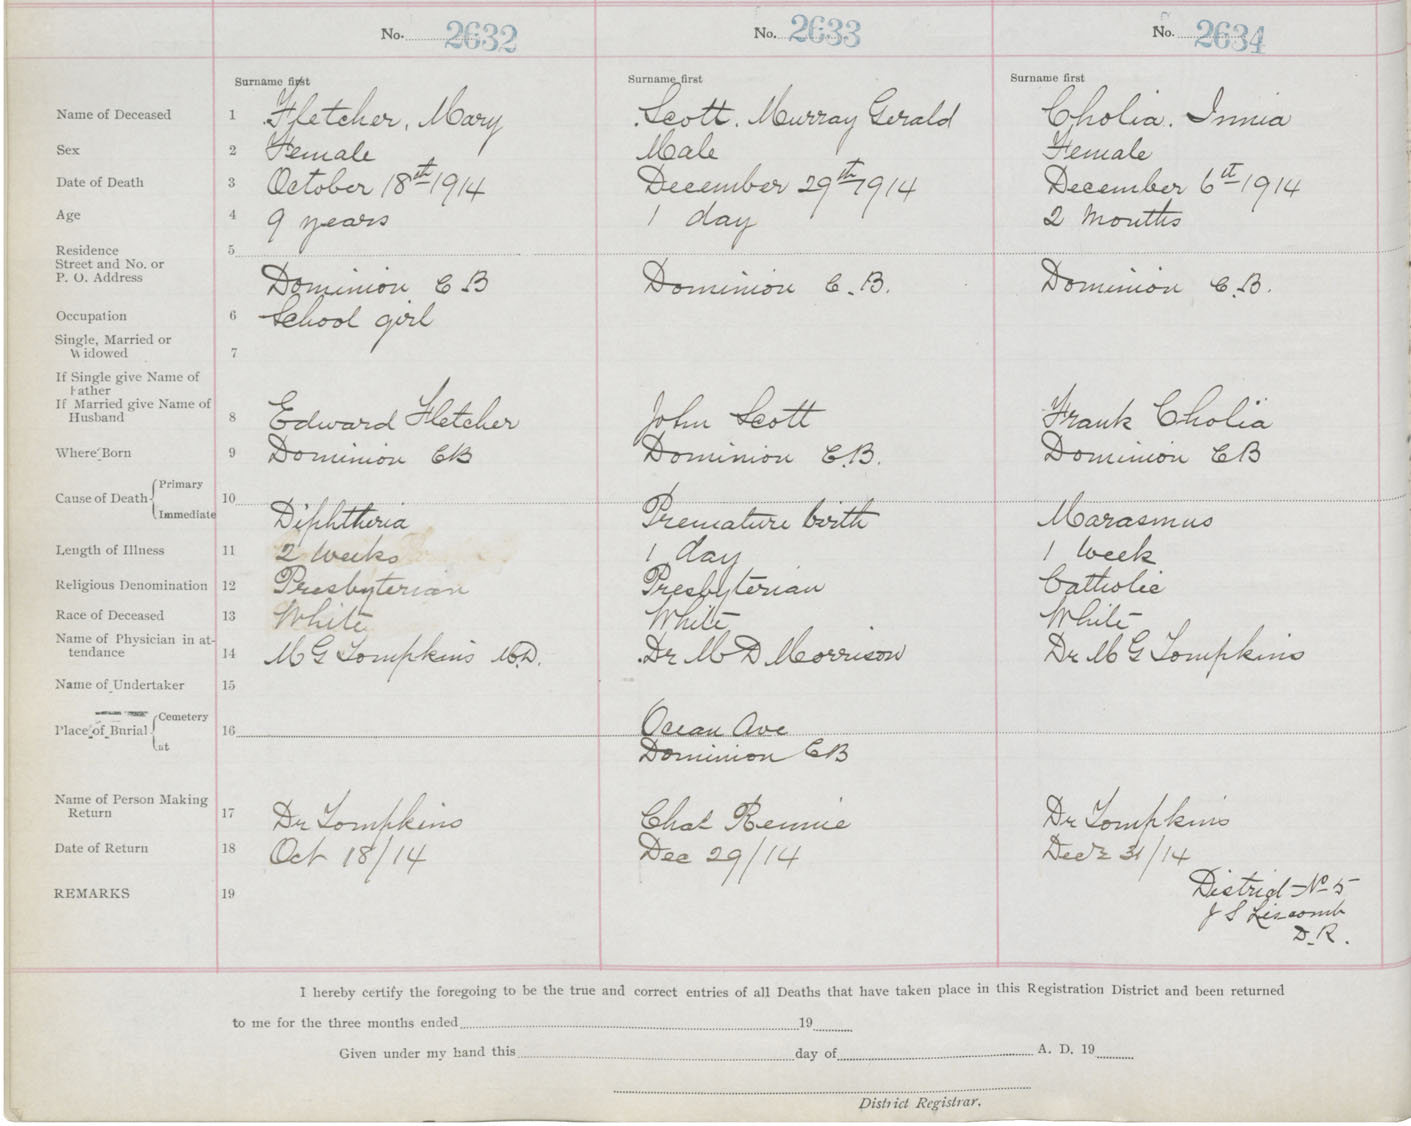 No. 2632 No. 2633 No. 2634
Surname first Surname first Surname first
Name of Deceased 1 Fletcher, Mary Scott. Murray Gerald Cholia. Innia
Sex 2 Female Male Female
Date of Death 3 October 18th 1914 December 29th 1914 December 6th 1914
Age 4 9 years 1 day 2 months
Residence 5
Street and No. or
P. O. Address Dominion C B Dominion C.B. Dominion C.B.
Occupation 6 School girl
Single, Married or
Widowed 7
If Single give Name of
Father
If Married give Name of
Husband 8 Edward Fletcher John Scott Frank Cholia
Where Born 9 Dominion CB Dominion C.B. Dominion CB
Primary
Cause of Death 10
Immediate Diphtheria Premature birth Marasmus
Length of Illness 11 2 weeks 1 day 1 week
Religious Denomination 12 Presbyterian Presbyterian Catholic
Race of Deceased 13 White White White
Name of Physician in at-
tendance 14 M G Tompkins M.D. Dr M D Morrison Dr M G Tompkins
Name of Undertaker 15
Cemetery Ocean Ave
Place of Burial 16
at Dominion CB
Name of Person Making
Return 17 Dr Tompkins Chat Rennie Dr Tompkins
Date of Return 18 Oct 18/14 Dec 29/14 Dec 31/14
REMARKS 19 District No 5
J S Liscomb
D.R.
I hereby certify the foregoing to be the true and correct entries of all Deaths that have taken place in this Registration District and been returned
to me for the three months ended 19
Given under my hand this day of A. D. 19
District Registrar.